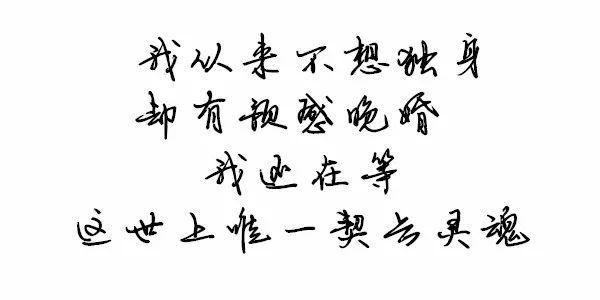 我从来不想独身
却有预感晚婚
我还在等
这世上唯一契合灵魂